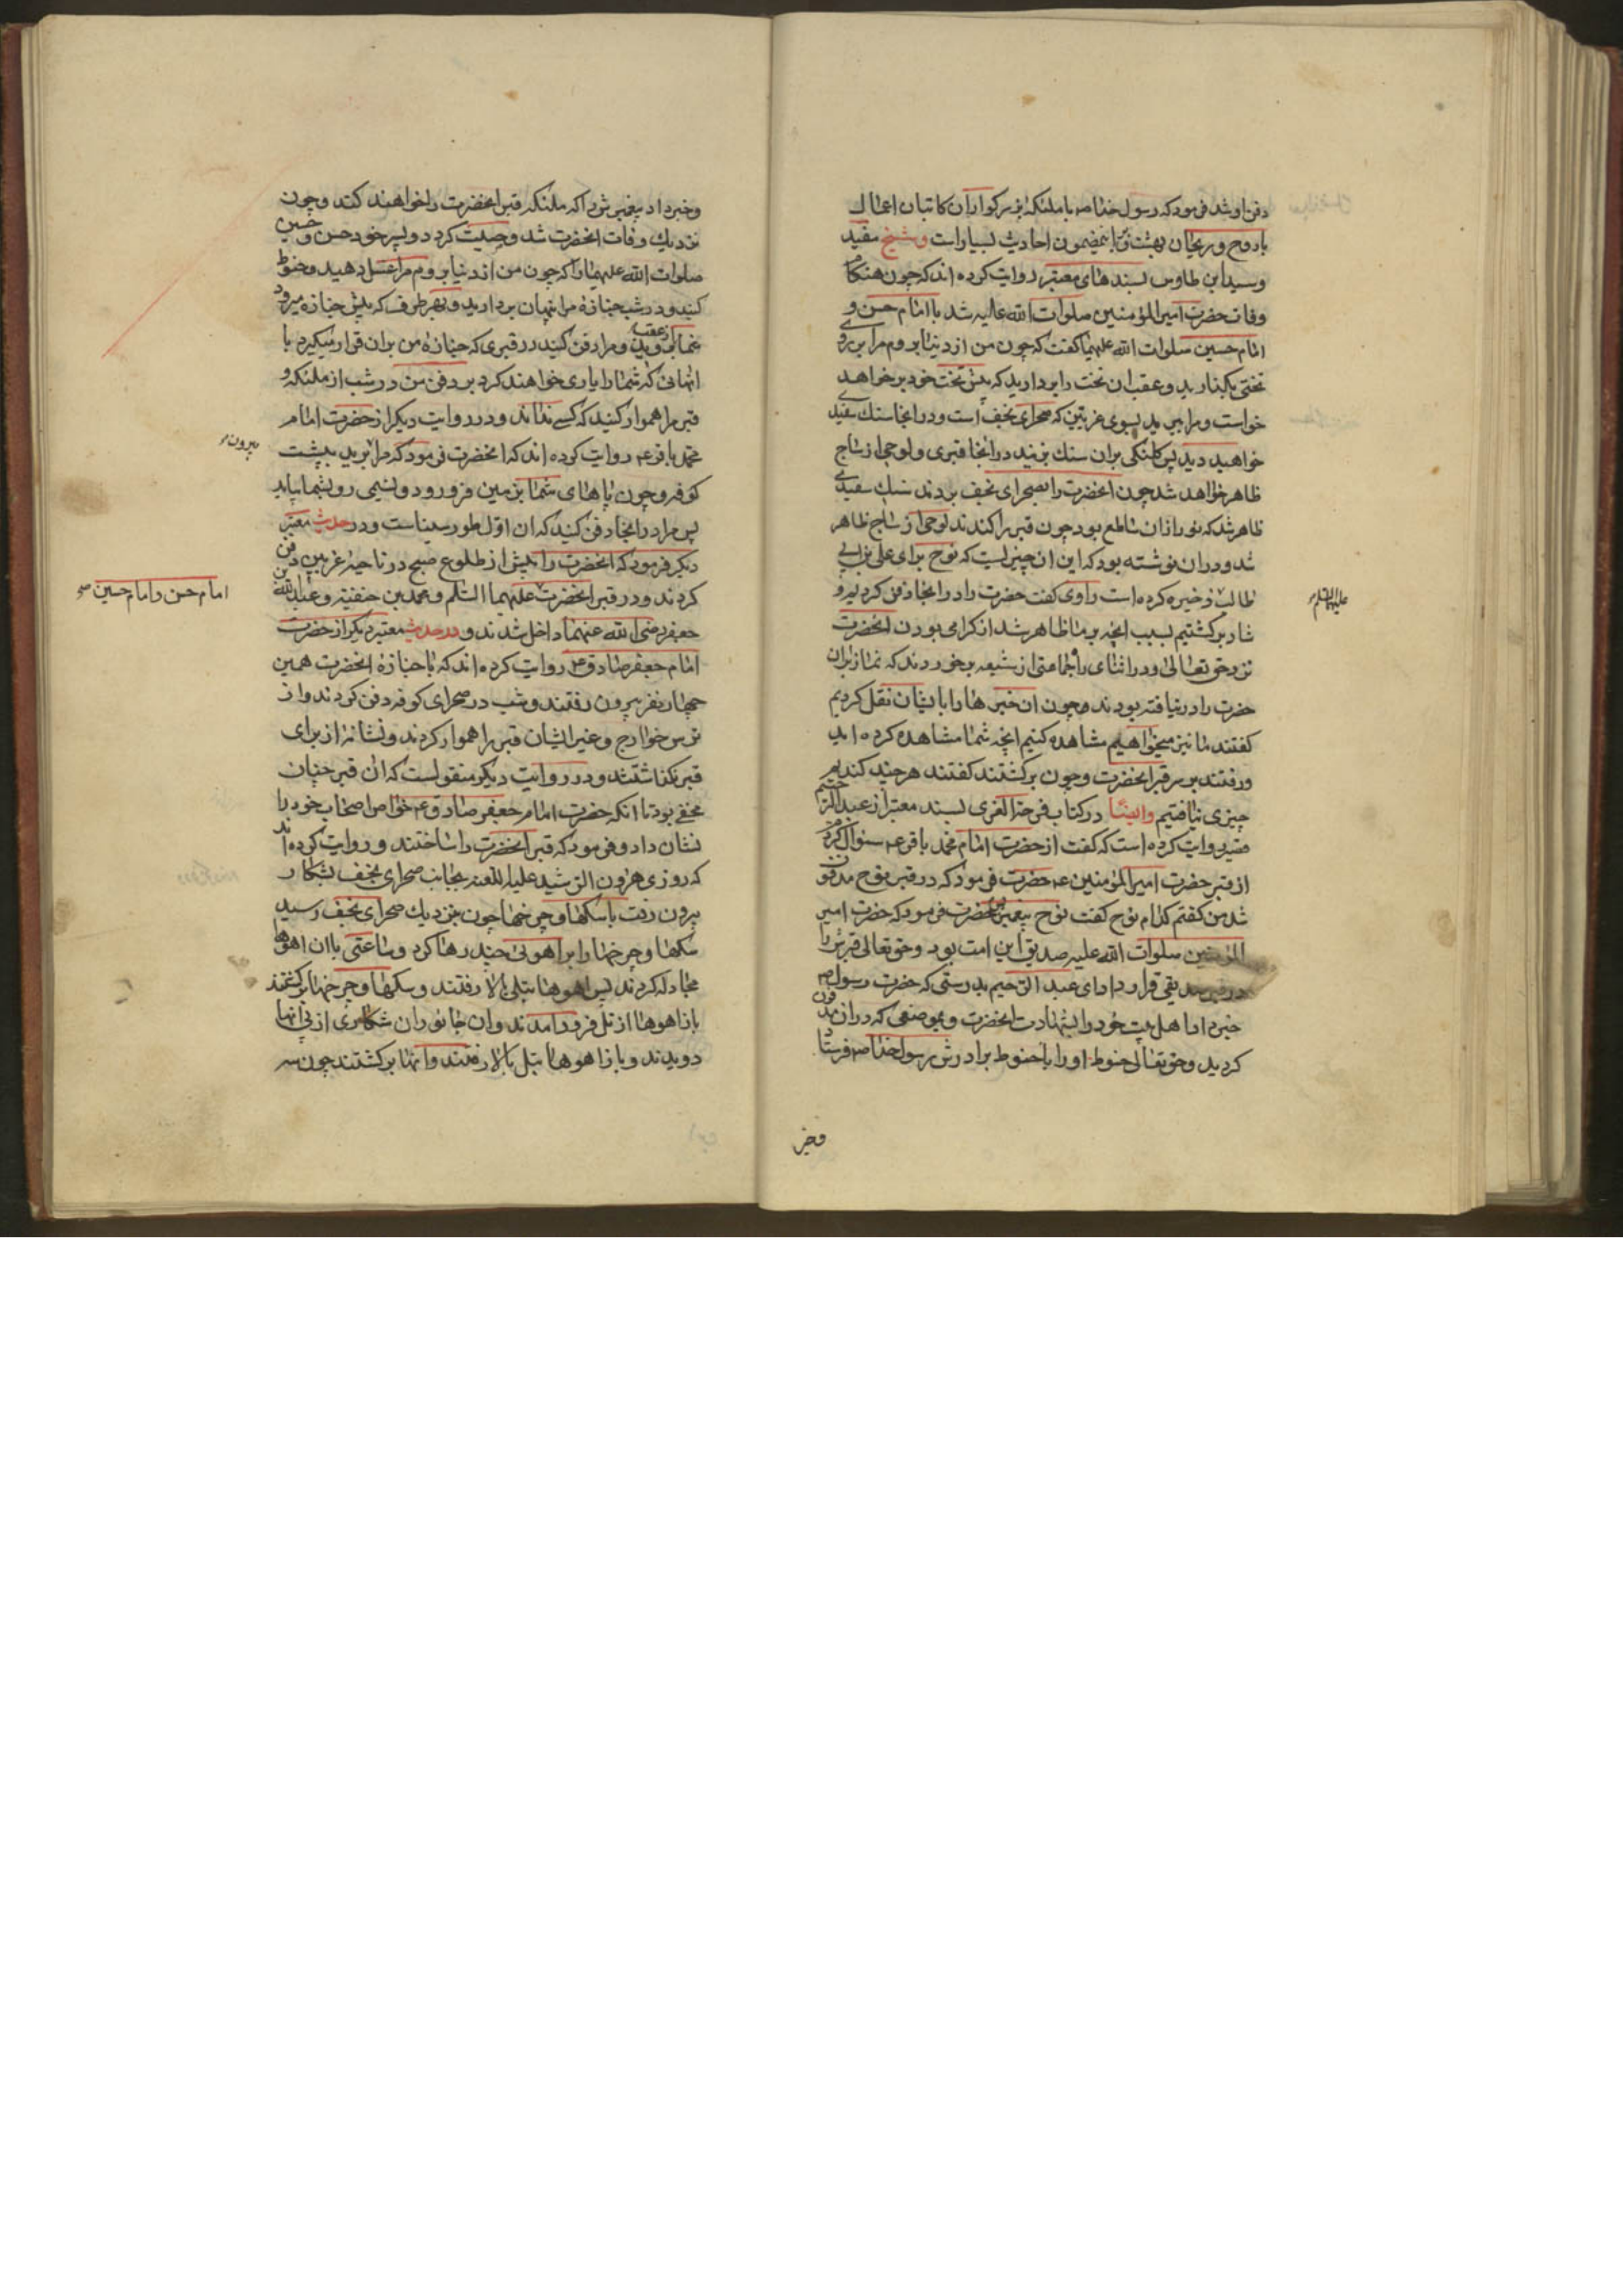 دفن او شد فرمود که رسول خدا صم با ملئکه بزرکواران کاتبان اعمال
با روح و ریحان بهشت و باینمضمون احادیث بسیار است و شیخ مفید
و سید ابن طاوس بسندهای معتبر روایت کرده اند که چون هنکام
وفات حضرت امیر المؤمنین صلوات الله علیه شد با امام حسن و
امام حسین صلوات الله علیهما کفت که چون من از دنیا بروم مرا بر روی
تختی بکذارید و عقب ان تخت را بردارید که پیش تخت خود بر خواهد
خواست و مرا ببرید بسوی غریین که صحرای نجف است و در انجا سنک سفیدی
خواهید دید پس کلنکی بران سنک بزنید در انجا قبری و لوحی از ساج
ظاهر خواهد شد چون انحضرت را بصحرای نجف بردند سنک سفیدی
ظاهر شد که نور ازان ساطع بود چون قبر را کندند لوحی از ساج ظاهر
شد و دران نوشته بود که این ان چیزیست که نوح برای علی بن ابی
طالب ذخیره کرده است راوی کفت حضرت را در انجا دفن کردیم و
علیه السلام
شاد برکشتیم بسبب انچه بر ما ظاهر شد از کرامی بودن انحضرت
نزد حق تعالی و در اثنای راه جماعتی از شیعه بر خوردند که نماز بران
حضرت را در نیافته بودند و چون ان خبرها را با ایشان نقل کردیم
کفتند ما نیز میخواهیم مشاهده کنیم انچه شما مشاهده کرده اید
و رفتند بر سر قبر انحضرت و چون برکشتند کفتند هر چند کندیم
چیزی نیافتیم وایضا در کتاب فرحة الغری بسند معتبر از عبد الرحیم
قصیر روایت کرده است که کفت از حضرت امام محمد باقر عم سئوال کردم
از قبر حضرت امیر المؤمنین عم حضرت فرمود که در قبر نوح مدفون
شد من کفتم کدام نوح کفت نوح پیغمبر حضرت فرمود که حضرت امیر
المؤمنین صلوات الله علیه صدیق این امت بود و حق تعالی قبرش را
در قبر صدیقی قرار داد ای عبد الرحیم بدرستی که حضرت رسول صم
خبر داد اهل بیت خود را بشهادت انحضرت و بموضعی که دران مدفون
کردید و حق تعالی حنوط او را با حنوط برادرش رسول خدا صم فرستاد
وخبر
وخبر داد پیغمبرش را که ملئکه قبر انحضرت را خواهند کند و چون
نزدیک وفات انحضرت شد وصیت کرد دو پسر خود حسن و حسین
صلوات الله علیهما را که چون من از دنیا بروم مرا غسل دهید و حنوط
کنید و در شب جنازه مرا پنهان بردارید و بهر طرف که پیش جنازه میرود
شما از عقب بروید و مرا دفن کنید در قبری که جنازه من بران قرار میکیرد با
انهائی که شما را یاری خواهند کرد بر دفن من در شب از ملئکه و
قبر مرا هموار کنید که کسی نداند و در روایت دیکر از حضرت امام
محمد باقر عم روایت کرده اند که انحضرت فرمود که مرا ببرید به پشت
بیرون
کوفه و چون پاهای شما بزمین فرو رود و نسیمی رو بشما بیاید
پس مرا در انجا دفن کنید که ان اول طور سیناست و در حدیث معتبر
دیکر فرمود که انحضرت را پیش از طلوع صبح در ناحیه غریین دفن
کردند و در قبر انحضرت علیهما السلام و محمد بن حنفیه و عبد الله بن
امام حسن و امام حسین صح
جعفر رضی الله عنهما داخل شدند و در حدیث معتبر دیکر از حضرت
امام جعفر صادق عم روایت کرده اند که با جنازه انحضرت همین
چهار نفر بیرون رفتند و شب در صحرای کوفه دفن کردند و از
ترس خوارج و غیر ایشان قبر را هموار کردند و نشانه از برای
قبر نکذاشتند و در روایت دیکر منقولست که ان قبر چنان
مخفی بود تا انکه حضرت امام جعفر صادق عم خواص اصحاب خود را
نشان داد و فرمود که قبر انحضرت را ساختند و روایت کرده اند
که روزی هرون الرشید علیه اللعنه بجانب صحرای نجف بشکار
بیرون رفت با سکها و چرخها چون بنزدیک صحرای نجف رسید
سکها و چرخها را بر اهوئی چند رها کرد و ساعتی با ان اهوها
مجادله کردند پس اهوها بتلی بالا رفتند و سکها و چرخها برکشتند
باز اهوها از تل فرود امدند و ان جانوران شکاری از پی انها
دویدند و باز اهوها بتل بالا رفتند و انها برکشتند چون سه